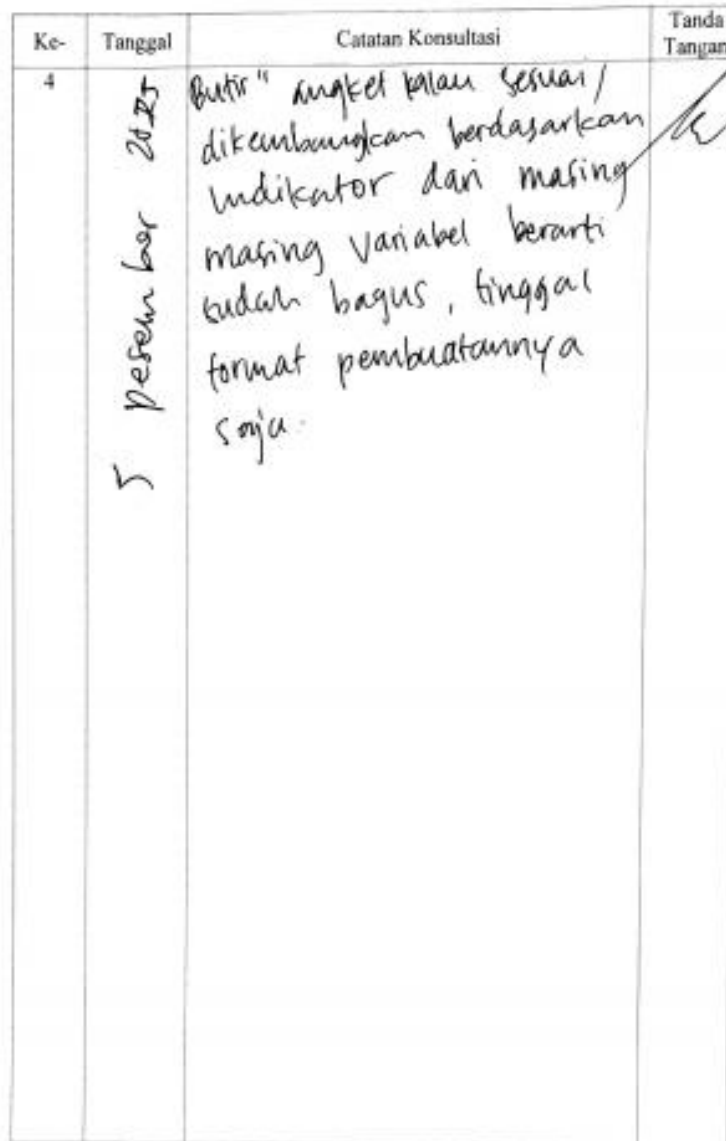 Ke- Tanggal Catatan Konsultasi Tanda Tangan
4
5 Desember 2025
Butir" angket kalau sesuai/
dikembangkan berdasarkan
indikator dari masing
masing variabel berarti
sudah bagus, tinggal
format pembuatannya
saja.